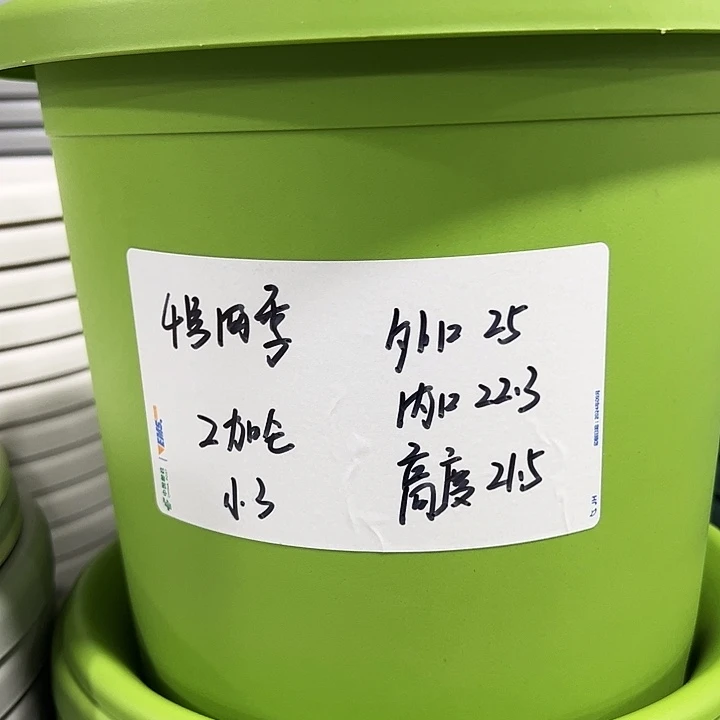 4号四季
2加仑
外口 25
内口 22.3
高度 21.5